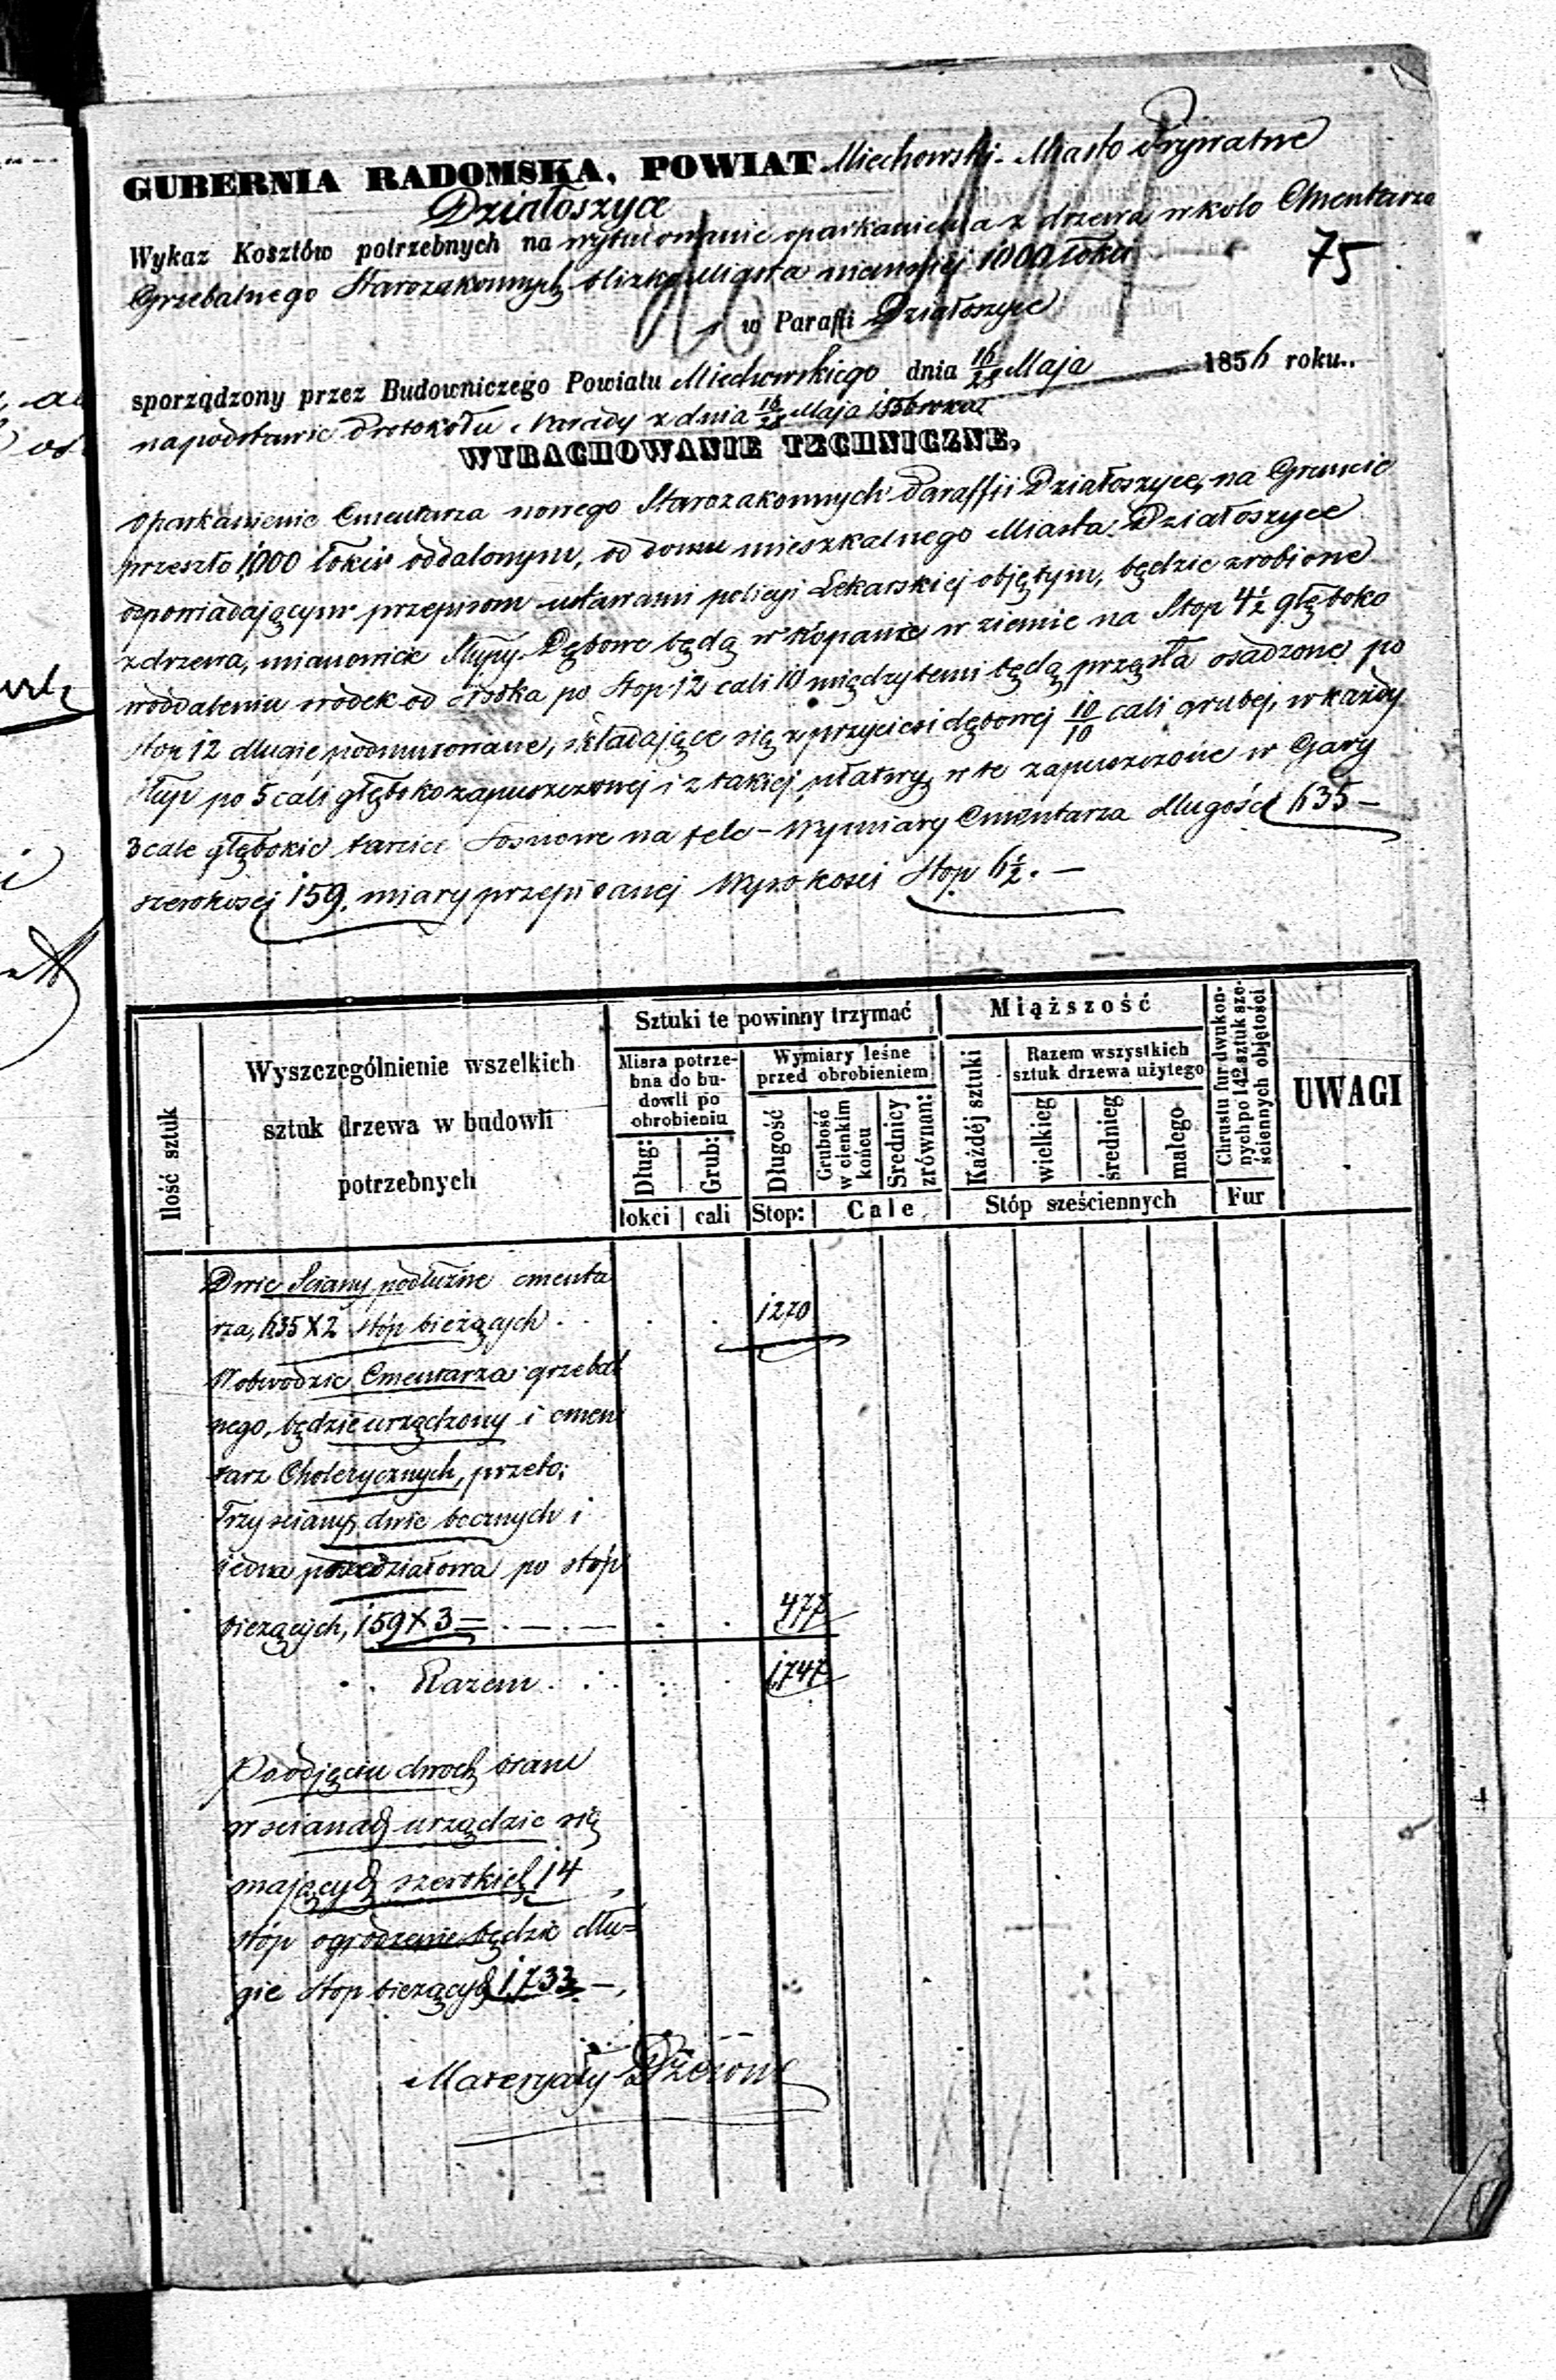 GUBERNIA RADOMSKA, POWIAT Miechowski. Miasto Prywatne
Działoszyce
Wykaz Kosztów potrzebnych na oparkanienia z drzewa wkoło Cmentarza
75
Grzebalnego Starozakonnych blizko Miasta 1000 łokci
w Paraffi Działoszyce
sporządzony przez Budowniczego Powiatu Miechowskiego dnia 16/28 Maja 1856 roku..
na podstawie Protokółu Narady z dnia 16/28 Maja 1856 roku
WYRACHOWANIE TECHNICZNE,
Oparkanienie Cmentarza nowego Starozakonnych Paraffii Działoszyce, na Gruncie
przeszło 1000 łokci oddalonym, od domu mieszkalnego Miasta Działoszyce
odpowiadającym przepisom ustawami policyi Lekarskiej objętym, będzie zrobione
z drzewa, mianowicie Słupy Dębowe będą wkopane w ziemie na Stop 4½ głęboko
w oddaleniu srodek od srodka po Stop 12 cali 10 między temi będą przęsła osadzone po
stop 12 długie podmurowane, składające się z przyciesi dębowej 10/10 cali grubej, w każdy
słup po 5 cali głęboko zapuszczonej i z takiej płatwy, w te zapuszczone w Gary
3 cale głębokie tarcice sosnowe na felc – Wymiary Cmentarza długości 635 –
szerokosci 159. miary przepisanej Wysokosci Stop 6½. –
Ilość sztuk
Wyszczególnienie wszelkich
sztuk drzewa w budowli
potrzebnych
Sztuki te powinny trzymać
Miara potrze-
bna do bu-
dowli po
obrobieniu
Wymiary leśne
przed obrobieniem
Dług:
Grub:
Długość
Grubość
w cienkim
końcu
Srednicy
zrównan:
łokci
cali
Stop:
Cale
Miąższość
Każdéj sztuki
Razem wszystkich
sztuk drzewa użytego
wielkieg
średnieg
małego
Stóp sześciennych
Chrustu fur dwukon-
nych po 142 sztuk sze-
ściennych objętości
Fur
UWAGI
Dwie Sciany podłużne cmenta
rza, 635 X 2 stóp bieżących . . 1270
W obwodzie Cmentarza grzebal
nego, będzie urządzony i cmen
tarz Cholerycznych, przeto:
Trzy sciany, dwie bocznych i
iedna przedziałowa po stóp
bieżących, 159 X 3 = . – . – 477
. . Razem . . . 1,747
Po odjęciu dwoch bram
w scianach urządzic się
mających szerokich 14
stóp ogrodzenie będzie dłu=
gie Stop bieżących 1,733 –
Materyały